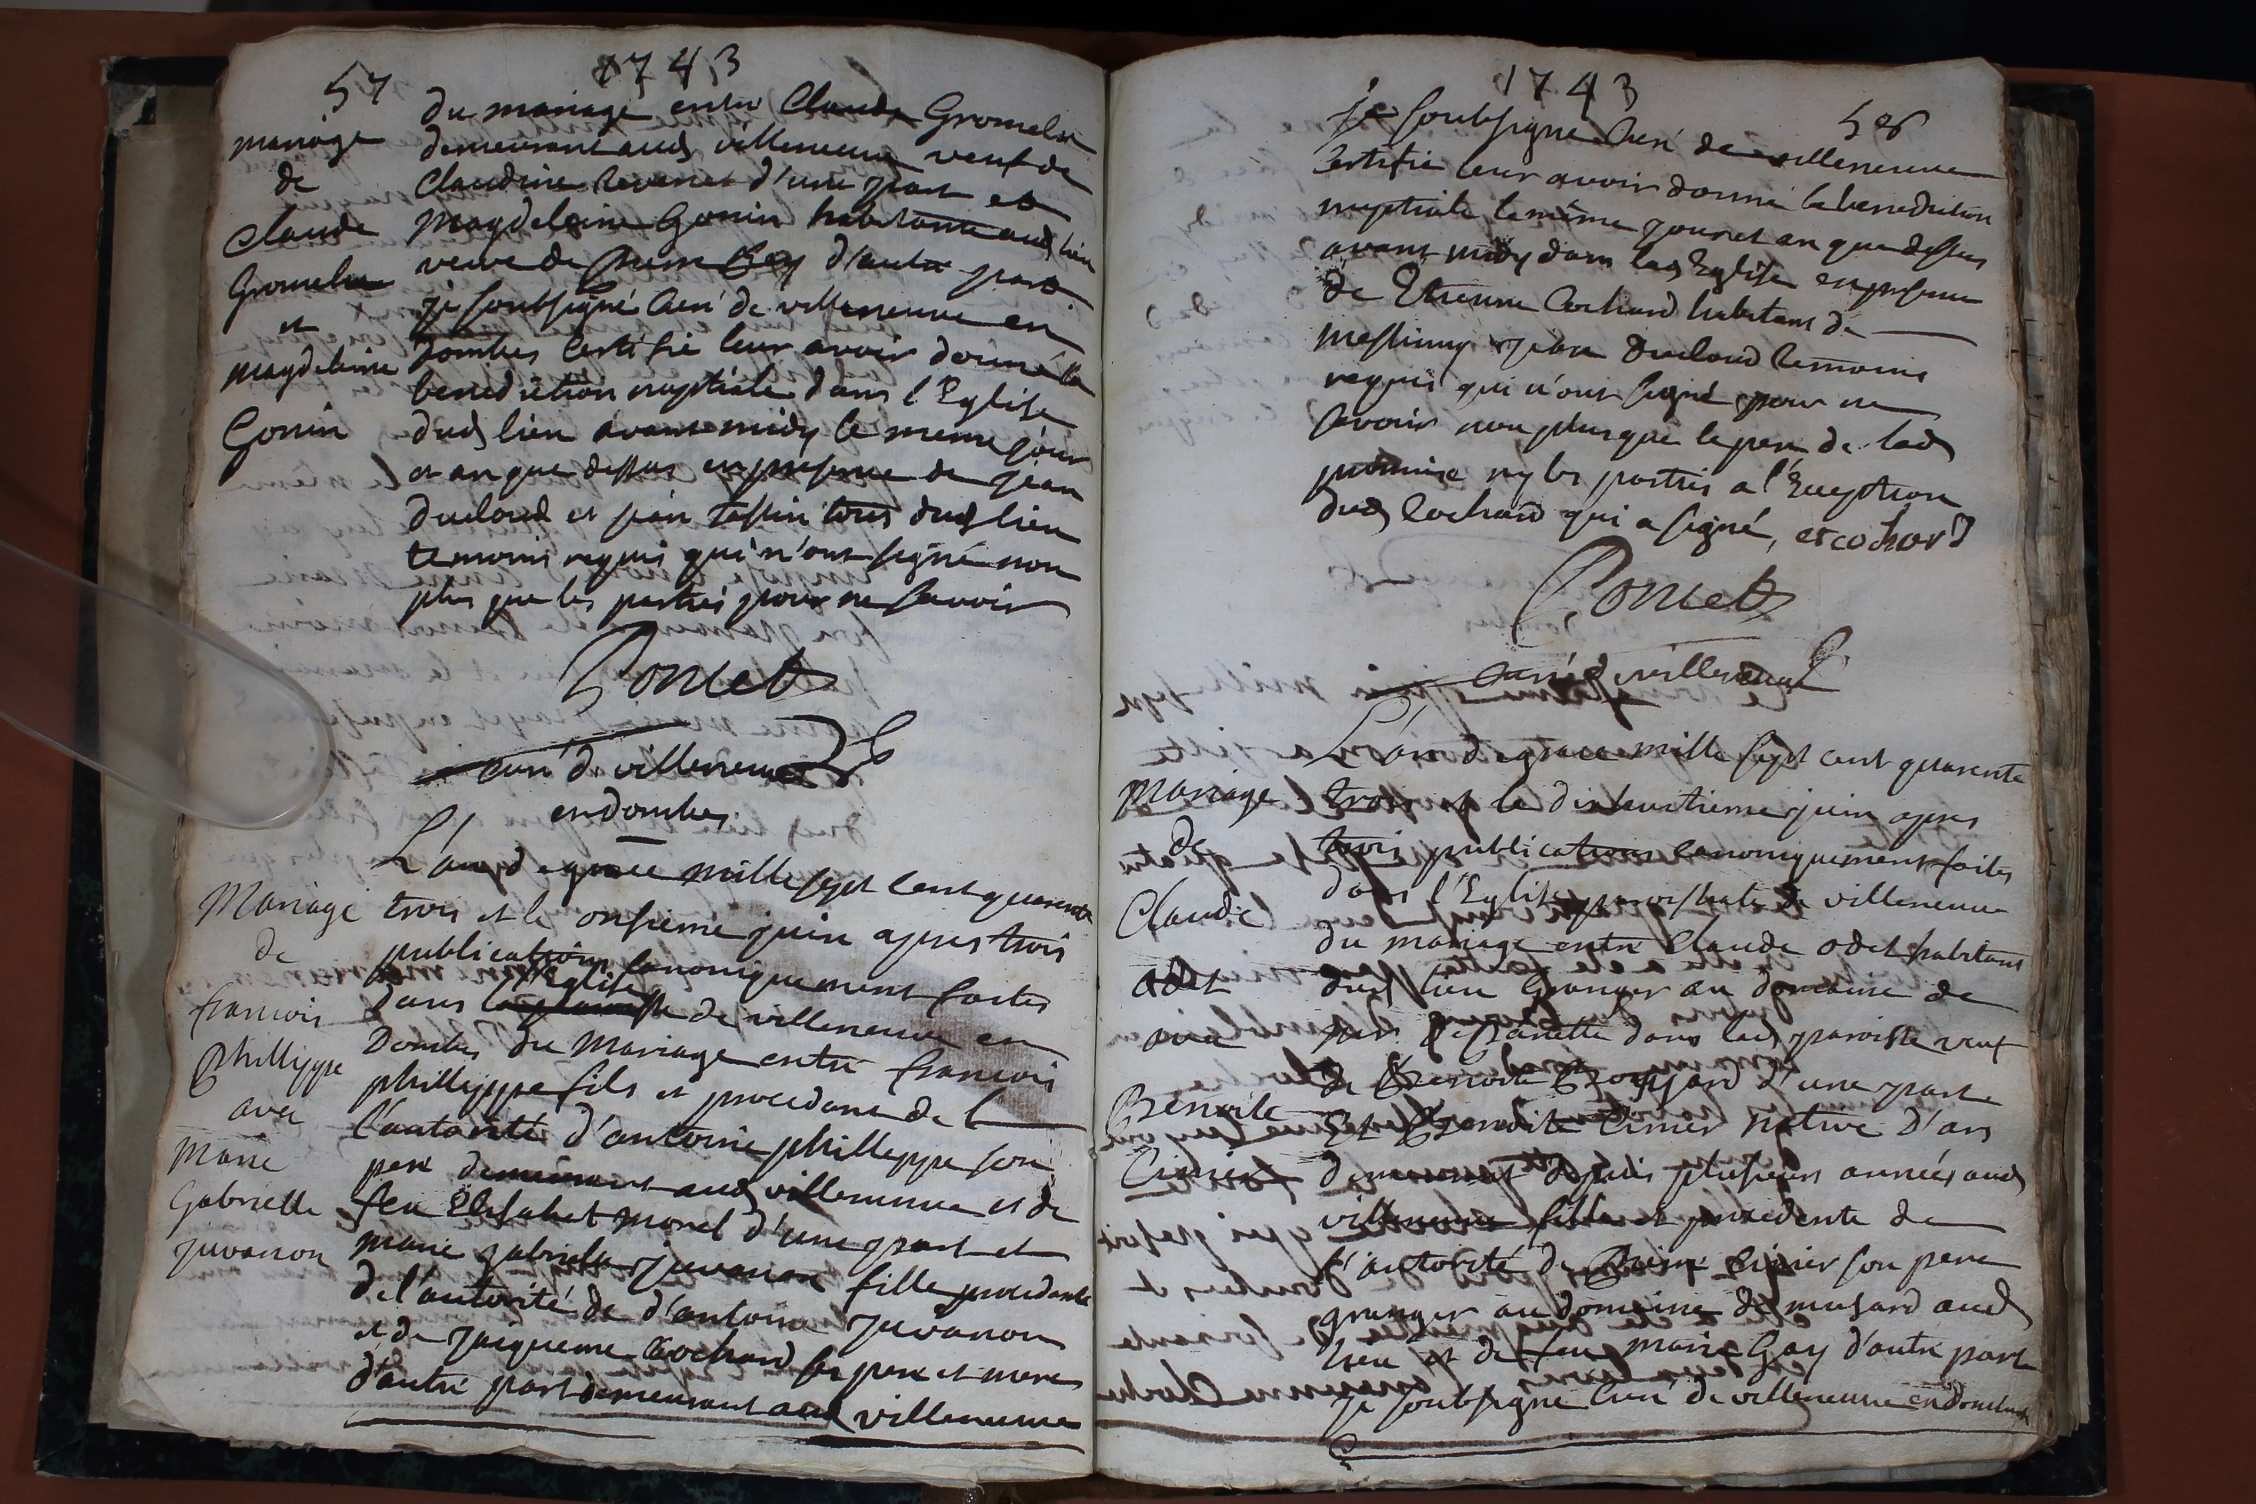 1743
57
mariage
de
Claude
Gromelin
et
magdelaine
Gonin
du mariage entre Claude Gromelin
demeurant aud villeneuve veuf de
Claudine Revenet d'une part et
Magdeleine Gonin habitante aud lieu
veuve de Pierre Rey d'autre part
je soubsigné Curé de villeneuve en
Dombes Certifie leur avoir donné la
benediction nuptiale dans l'Eglise
dud lieu avant midy le meme jour
et an que dessus en presence de jean
Ducloud et jean tassin tous dud lieu
temoins requis qui n'ont signé non
plus que les parties pour ne savoir
Poncet
curé d villeneuve
en dombes
Mariage
de
francois
Phillippe
avec
Marie
Gabrielle
juvanon
L'an d grace mille sept cent quarente
trois et le onsieme juin apres trois
publications canoniquement faites
l'Eglise
dans de villeneuve en
Dombes du Mariage entre francois
phillippe fils et procedant de
l'autorité d'antoine phillippe son
pere demeurant aud villeneuve et de
feu Elisabet morel d'une part et
marie gabrielle juvanon fille procedante
de l'autorité de d'antoine juvanon
et de jacqueme Cochard ses pere et mere
d'autre part demeurant aud villeneuve
1743
58
je soubsigne Curé de villeneuve
Certifie leur avoir donné la benediction
nuptiale le même jour et an que dessus
avant midy dans lad Eglise en presence
de Etienne Cochard habitant de
messimy jean Ducloud temoins
requis qui n'ont signé pour ne
savoir non plus que le pere de lad
promise ny les parties a l'Exeption
dud Cochard qui a signé, et cochard
Poncet
curé d villeneuve
Mariage
de
Claude
odet
avec
Benoite
Cinier
L'an d grace mille sept cent quarente
trois et le dixhuitieme juin apres
trois publications canoniquement faites
dans l'Eglise paroissiale de villeneuve
du mariage entre Claude odet habitant
dud lieu Granger au domaine de
dans lad paroisse veuf
de Benoite d'une part
Et Benoite Cinier Native D'ars
demeurant depuis plusieurs années aud
villeneuve fille et procedente de
l'autorité de Pierre Cinier son pere
granger au domaine de musard aud
lieu et de feu marie Gay d'autre part
je soubsigne Curé de villeneuve en Dombes